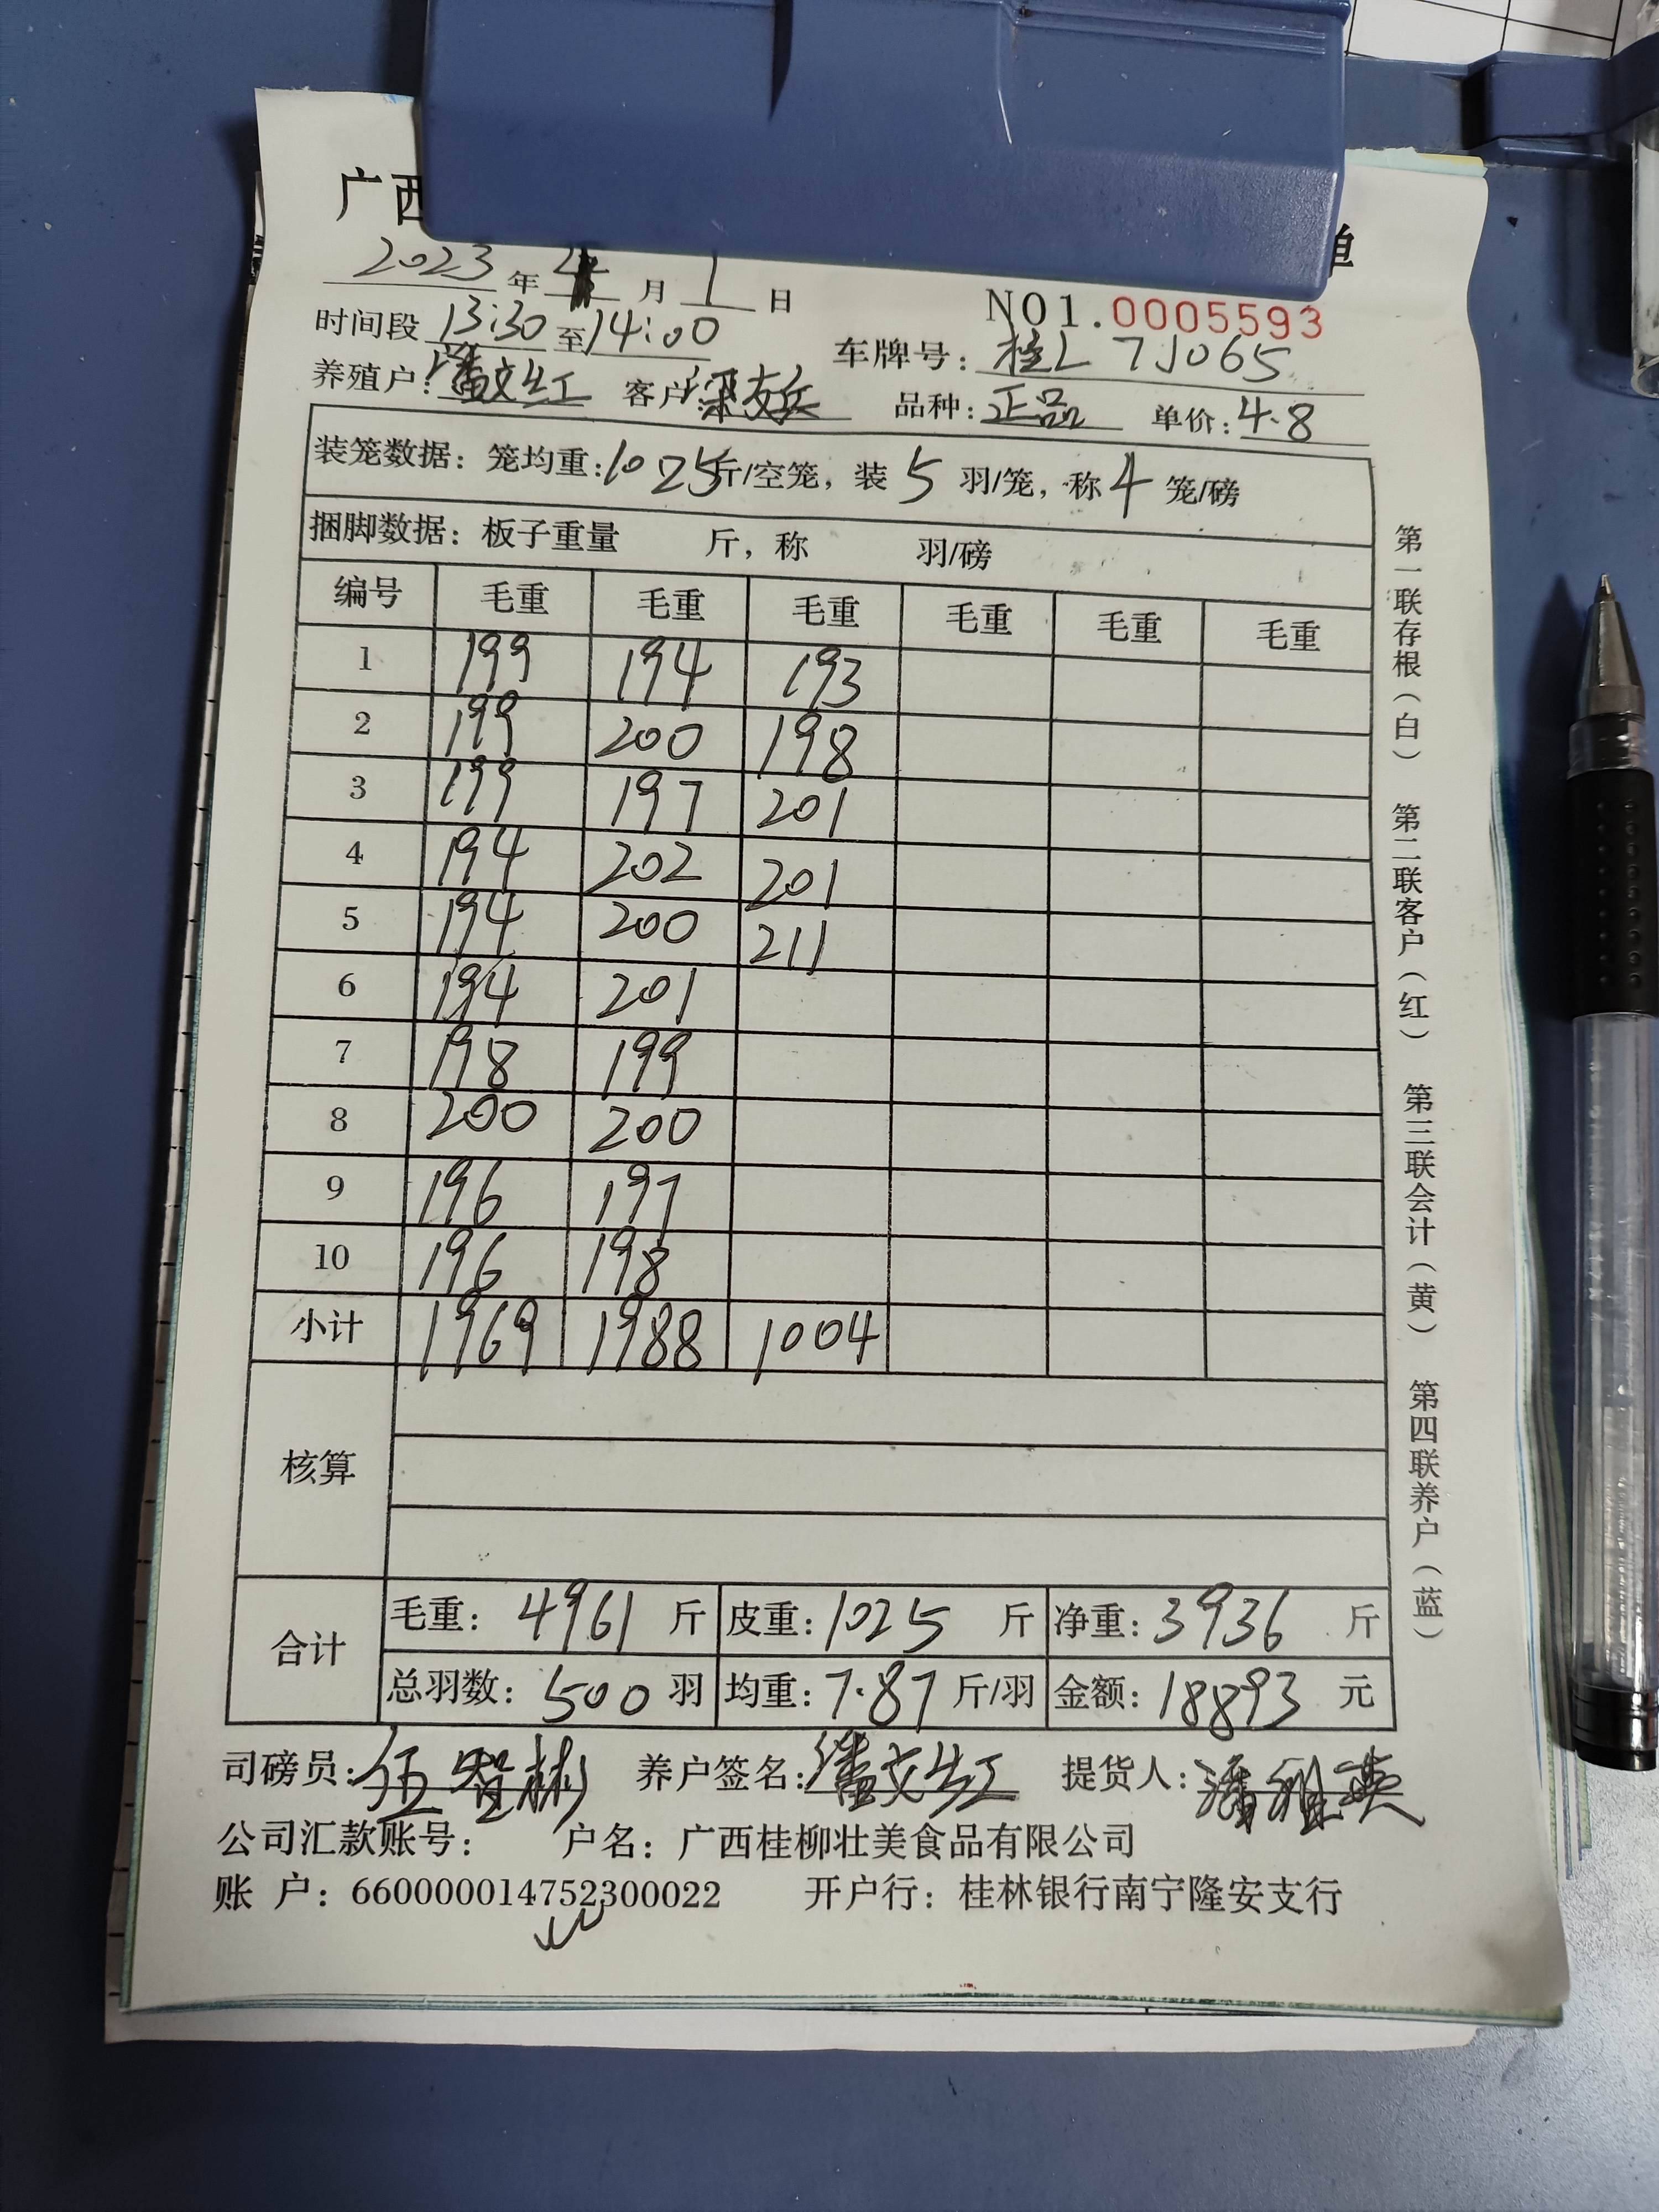 广西 单
2023 年 4 月 1 日
NO1.0005593
时间段 13:30 至 14:00 车牌号: 桂L 7J065
养殖户: 潘文红 客户: 梁友兵 品种: 正品 单价: 4.8
装笼数据: 笼均重: 10.25 斤/空笼, 装 5 羽/笼, 称 4 笼/磅
捆脚数据: 板子重量 斤, 称 羽/磅
编号 毛重 毛重 毛重 毛重 毛重 毛重
1 199 194 193
2 199 200 198
3 199 197 201
4 194 202 201
5 194 200 211
6 194 201
7 198 199
8 200 200
9 196 197
10 196 198
小计 1969 1988 1004
核算
合计
毛重: 4961 斤 皮重: 1025 斤 净重: 3936 斤
总羽数: 500 羽 均重: 7.87 斤/羽 金额: 18893 元
司磅员: 伍智彬 养户签名: 潘文红 提货人: 潘雅英
公司汇款账号: 户名: 广西桂柳壮美食品有限公司
账 户: 660000014752300022 开户行: 桂林银行南宁隆安支行
第一联存根(白) 第二联客户(红) 第三联会计(黄) 第四联养户(蓝)